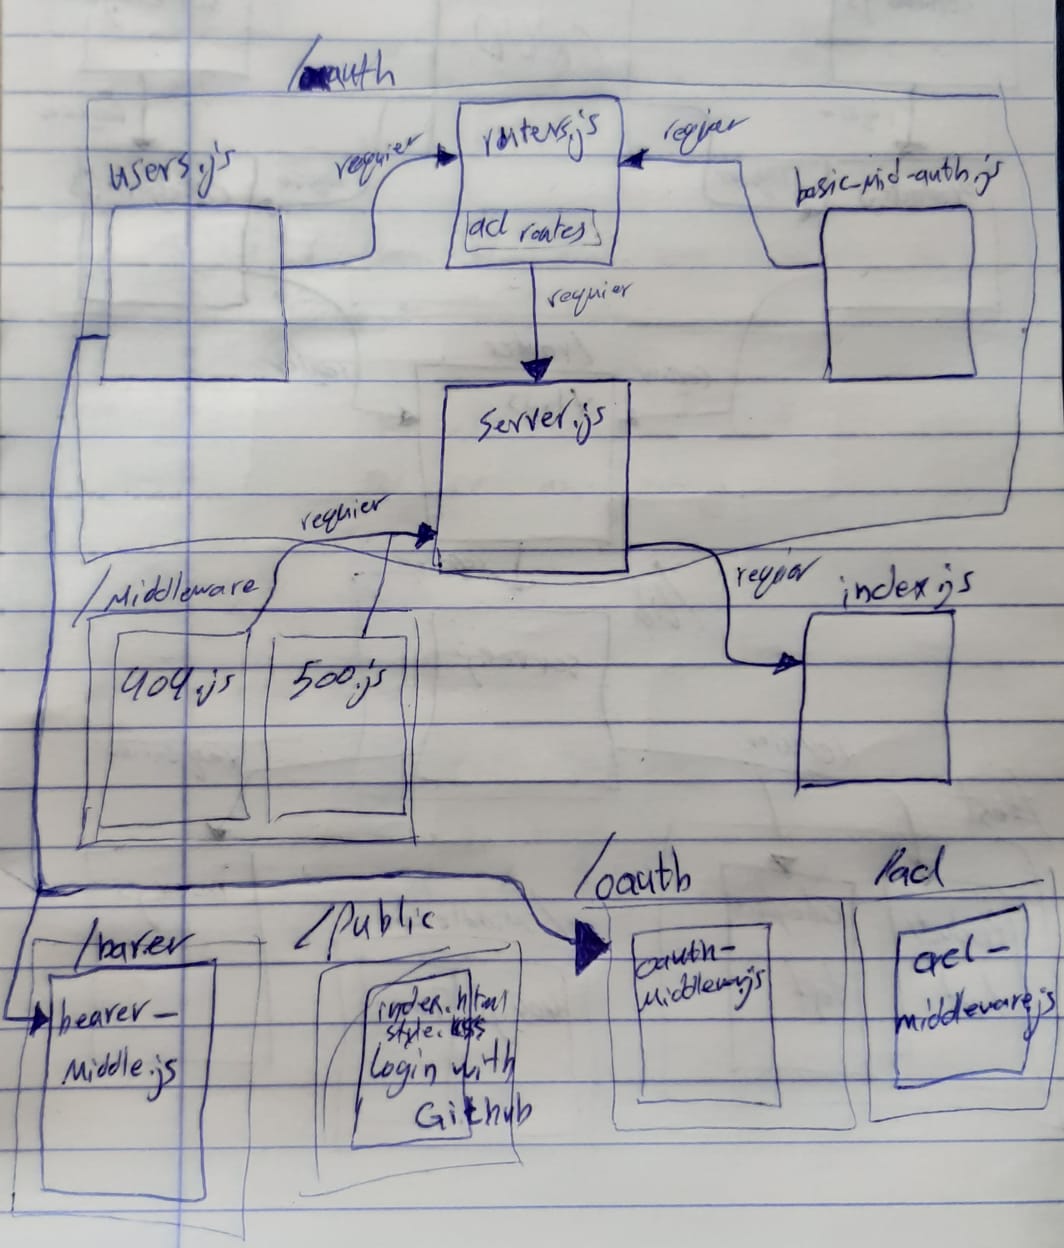 /auth
users.js
requier
routers.js
acl routes
requier
basic-mid-auth.js
requier
server.js
requier
/Middleware
404.js
500.js
index.js
/barer
bearer-
Middle.js
/Public
index.html
style.css
Login with
Github
/oauth
oauth-
/acl
acl-
middleware.js